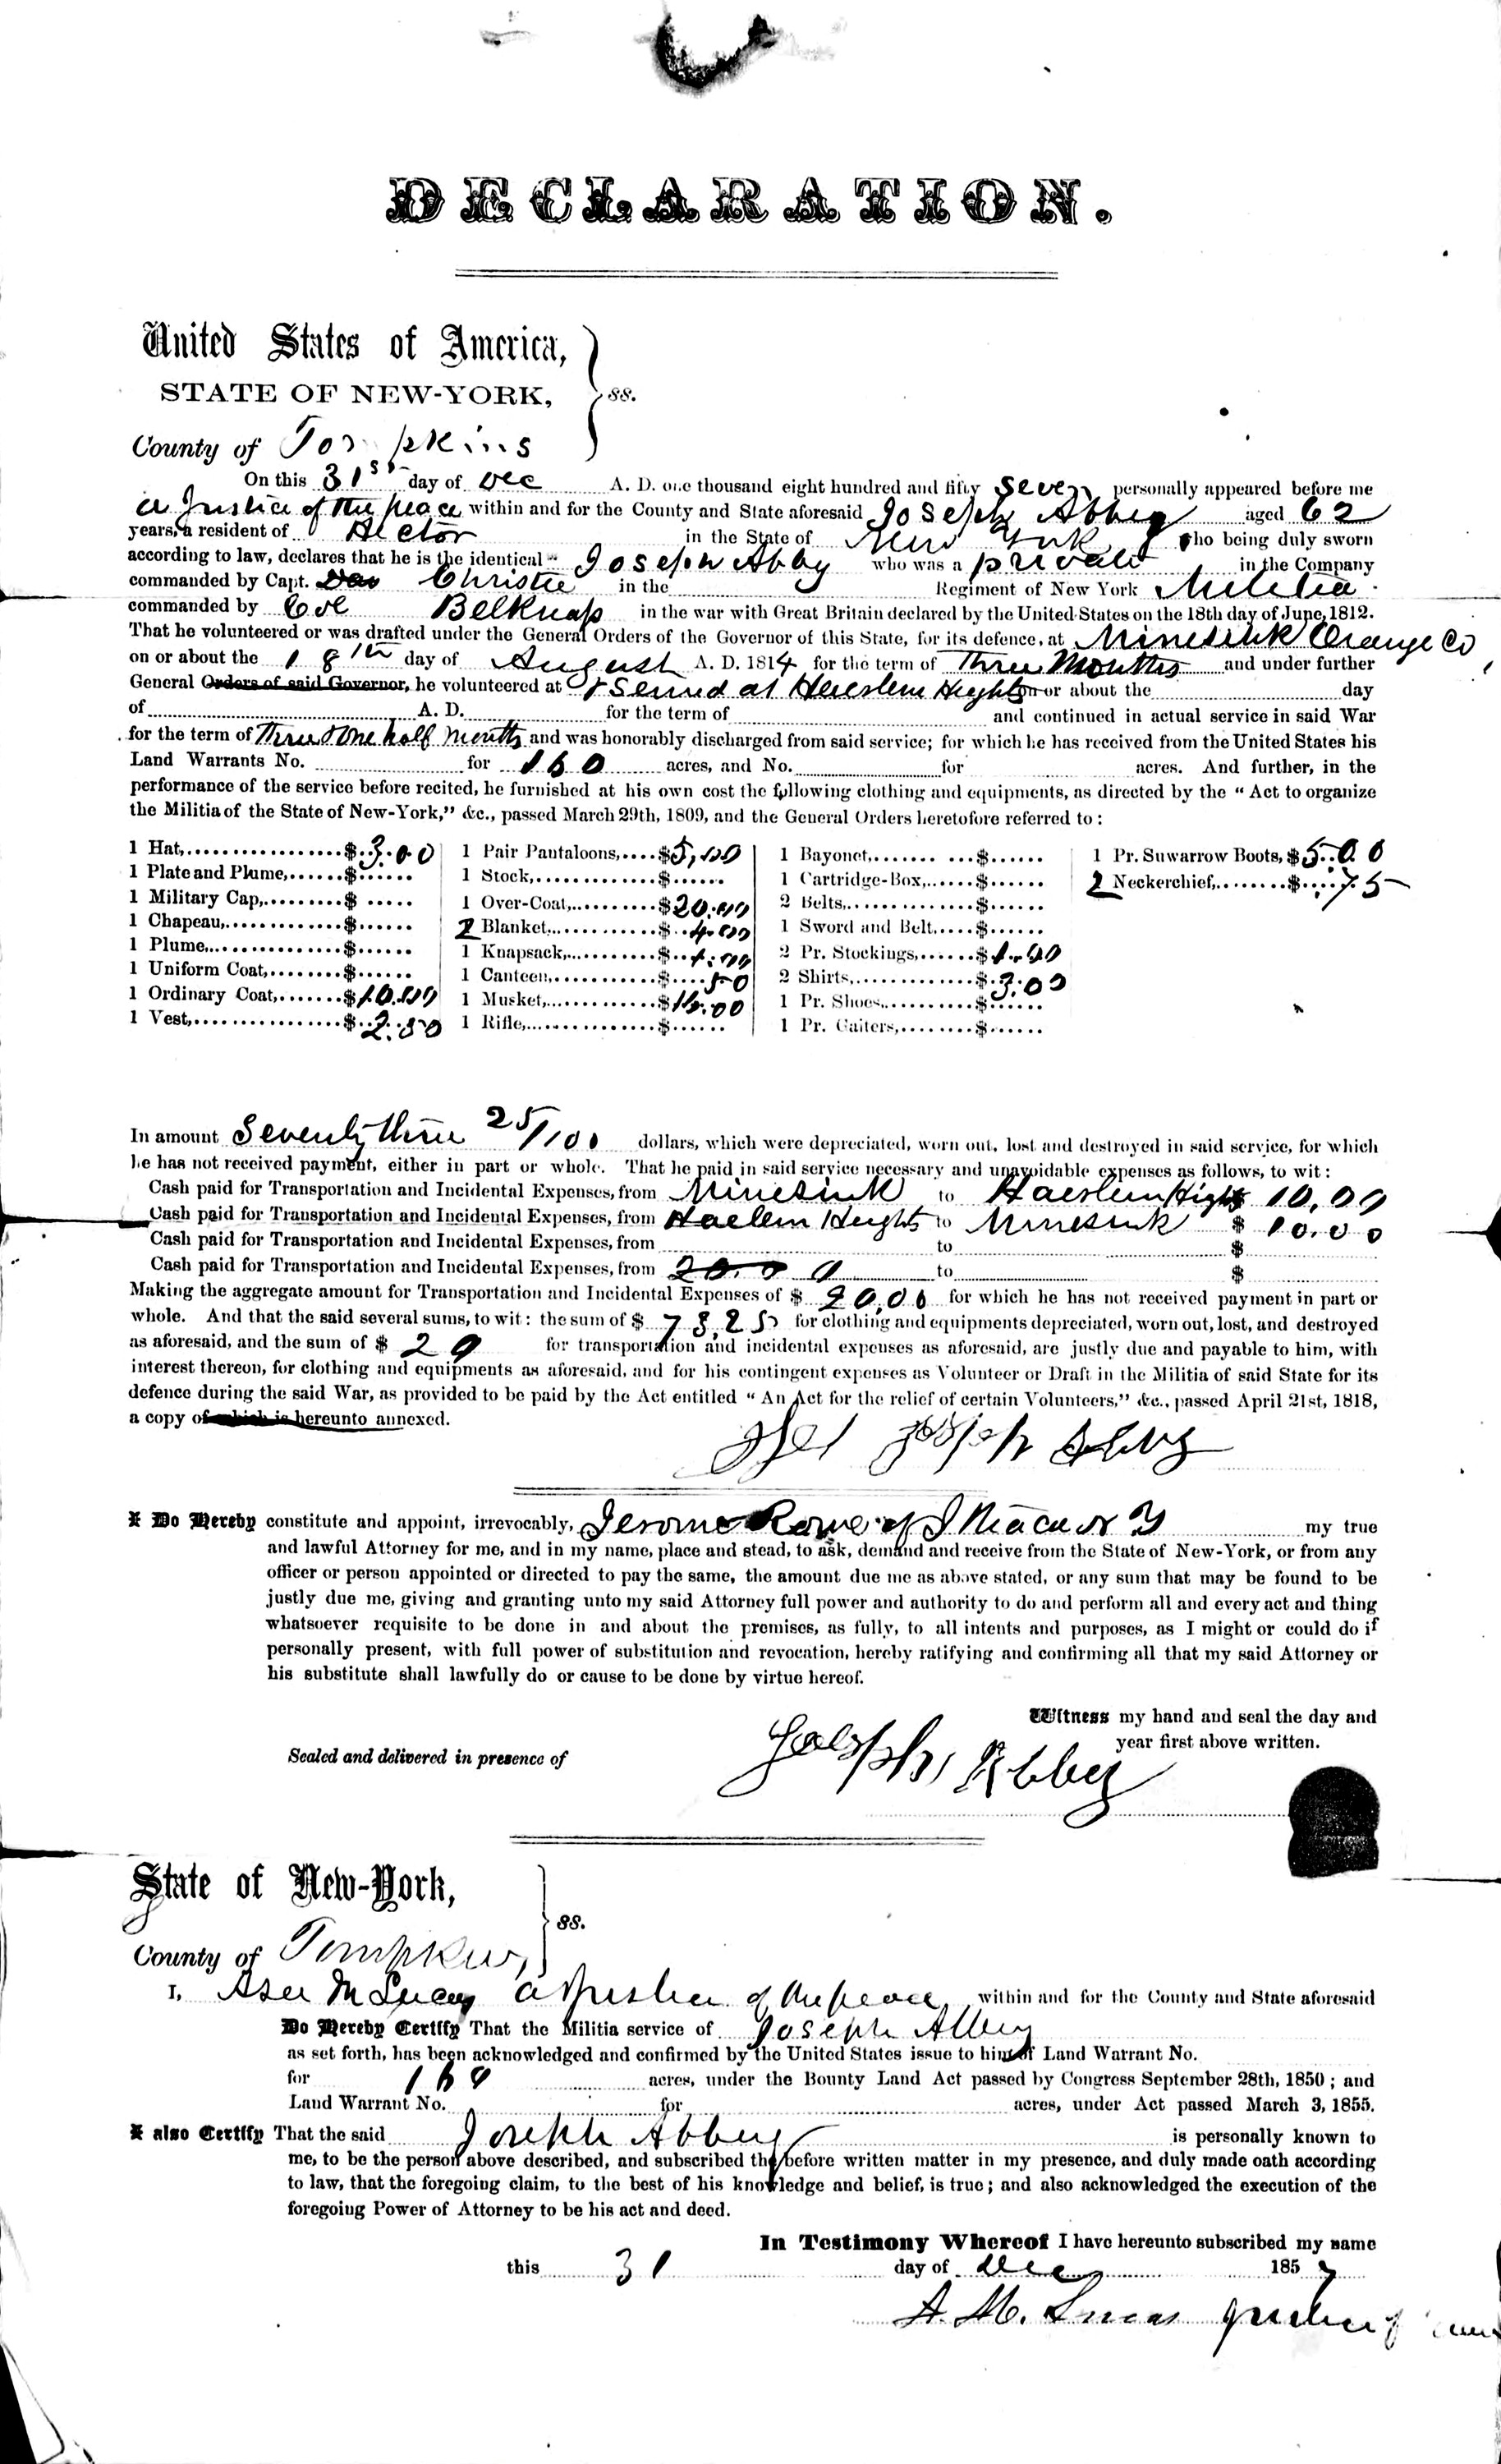 DECLARATION.
United States of America,
STATE OF NEW-YORK, } ss.
County of Tompkins
On this 31st day of Dec A. D. one thousand eight hundred and fifty seven personally appeared before me
a Justice of the peace within and for the County and State aforesaid Joseph Abbey aged 62
years, a resident of Hector in the State of New York who being duly sworn
according to law, declares that he is the identical Joseph Abby who was a private in the Company
commanded by Capt. Christie in the Regiment of New York Militia
commanded by Col Belknap in the war with Great Britain declared by the United States on the 18th day of June, 1812.
That he volunteered or was drafted under the General Orders of the Governor of this State, for its defence, at Minesink Orange Co
on or about the 18th day of August A. D. 1814 for the term of Three Months and under further
General Orders of said Governor, he volunteered at & Served at Hearlem Heights on or about the day
of A. D. for the term of and continued in actual service in said War
for the term of Three & One half months and was honorably discharged from said service; for which he has received from the United States his
Land Warrants No. for 160 acres, and No. for acres. And further, in the
performance of the service before recited, he furnished at his own cost the following clothing and equipments, as directed by the “ Act to organize
the Militia of the State of New-York,” &c., passed March 29th, 1809, and the General Orders heretofore referred to :
1 Hat, $ 3.00
1 Plate and Plume, $
1 Military Cap, $
1 Chapeau, $
1 Plume, $
1 Uniform Coat, $
1 Ordinary Coat, $ 10.00
1 Vest, $ 2.50
1 Pair Pantaloons, $ 5,00
1 Stock, $
1 Over-Coat, $ 20.00
Blanket, $ 4.00
1 Knapsack, $ 1.00
1 Canteen, $ 50
1 Musket, $
1 Rifle, $
1 Bayonet, $
1 Cartridge-Box, $
2 Belts, $
1 Sword and Belt, $
2 Pr. Stockings, $
2 Shirts, $ 3.00
1 Pr. Shoes, $
1 Pr. Gaiters, $
1 Pr. Suwarrow Boots, $ 5.00
2 Neckerchief, $ .75
In amount Seventy three 25/100 dollars, which were depreciated, worn out, lost and destroyed in said service, for which
he has not received payment, either in part or whole. That he paid in said service necessary and unavoidable expenses as follows, to wit :
Cash paid for Transportation and Incidental Expenses, from Minesink to Haerlem Highs 10,00
Cash paid for Transportation and Incidental Expenses, from Haelem Heights to Minesink $ 10.00
Cash paid for Transportation and Incidental Expenses, from to $
Cash paid for Transportation and Incidental Expenses, from 20.00 to $
Making the aggregate amount for Transportation and Incidental Expenses of $ 20,00 for which he has not received payment in part or
whole. And that the said several sums, to wit : the sum of $ 73,25 for clothing and equipments depreciated, worn out, lost, and destroyed
as aforesaid, and the sum of $ 20 for transportation and incidental expenses as aforesaid, are justly due and payable to him, with
interest thereon, for clothing and equipments as aforesaid, and for his contingent expenses as Volunteer or Draft in the Militia of said State for its
defence during the said War, as provided to be paid by the Act entitled “ An Act for the relief of certain Volunteers,” &c., passed April 21st, 1818,
a copy of which is hereunto annexed.
Joseph Abby
I Do Hereby constitute and appoint, irrevocably, Jerome Rowe of Ithaca N Y my true
and lawful Attorney for me, and in my name, place and stead, to ask, demand and receive from the State of New-York, or from any
officer or person appointed or directed to pay the same, the amount due me as above stated, or any sum that may be found to be
justly due me, giving and granting unto my said Attorney full power and authority to do and perform all and every act and thing
whatsoever requisite to be done in and about the premises, as fully, to all intents and purposes, as I might or could do if
personally present, with full power of substitution and revocation, hereby ratifying and confirming all that my said Attorney or
his substitute shall lawfully do or cause to be done by virtue hereof.
Witness my hand and seal the day and
year first above written.
Sealed and delivered in presence of
Joesph Abbey
State of New-York,
} ss.
County of Tompkins,
I, Asa M Lucas a Justice of the peace within and for the County and State aforesaid
Do Hereby Certify That the Militia service of Joseph Abbey
as set forth, has been acknowledged and confirmed by the United States issue to him of Land Warrant No.
for 160 acres, under the Bounty Land Act passed by Congress September 28th, 1850 ; and
Land Warrant No. for acres, under Act passed March 3, 1855.
I also Certify That the said Joseph Abbey is personally known to
me, to be the person above described, and subscribed the before written matter in my presence, and duly made oath according
to law, that the foregoing claim, to the best of his knowledge and belief, is true ; and also acknowledged the execution of the
foregoing Power of Attorney to be his act and deed.
In Testimony Whereof I have hereunto subscribed my name
this 31 day of Dec 1857
A. M. Lucas Justice of